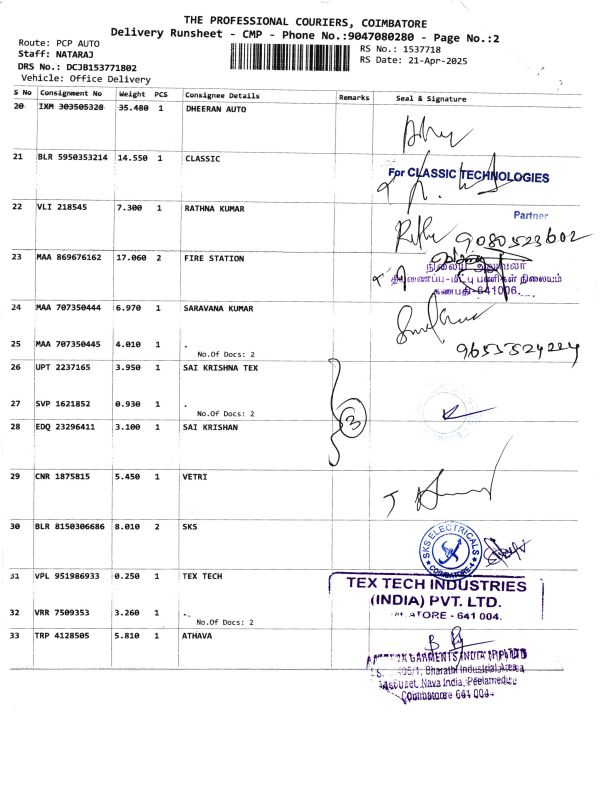 THE PROFESSIONAL COURIERS, COIMBATORE
Delivery Runsheet - CMP - Phone No.:9047080280 - Page No.:2
Route: PCP AUTO
Staff: NATARAJ
DRS No.: DCJB153771802
Vehicle: Office Delivery
RS No.: 1537718
RS Date: 21-Apr-2025
S No Consignment No Weight PCS Consignee Details Remarks Seal & Signature
20 IXM 303505328 35.480 1 DHEERAN AUTO
21 BLR 5950353214 14.550 1 CLASSIC
For CLASSIC TECHNOLOGIES
Partner
22 VLI 218545 7.300 1 RATHNA KUMAR
9080523602
23 MAA 869676162 17.060 2 FIRE STATION
நிலைய அலுவலர்
நிலையம்
கணபதி-641006.
24 MAA 707350444 6.970 1 SARAVANA KUMAR
25 MAA 707350445 4.010 1 .
No.Of Docs: 2
9655524224
26 UPT 2237165 3.950 1 SAI KRISHNA TEX
27 SVP 1621852 0.930 1 .
No.Of Docs: 2
3
28 EDQ 23296411 3.100 1 SAI KRISHAN
29 CNR 1875815 5.450 1 VETRI
30 BLR 8150306686 8.010 2 SKS
SKS ELECTRICALS
COIMBATORE-4
31 VPL 951986933 0.250 1 TEX TECH
TEX TECH INDUSTRIES
(INDIA) PVT. LTD.
ATORE - 641 004.
32 VRR 7509353 3.260 1 .
No.Of Docs: 2
33 TRP 4128505 5.810 1 ATHAVA
GARMENTS INDIA (P) LTD
405/1, Bharathi Industrial Area
Nava India, Peelamedu
Coimbatore 641 004